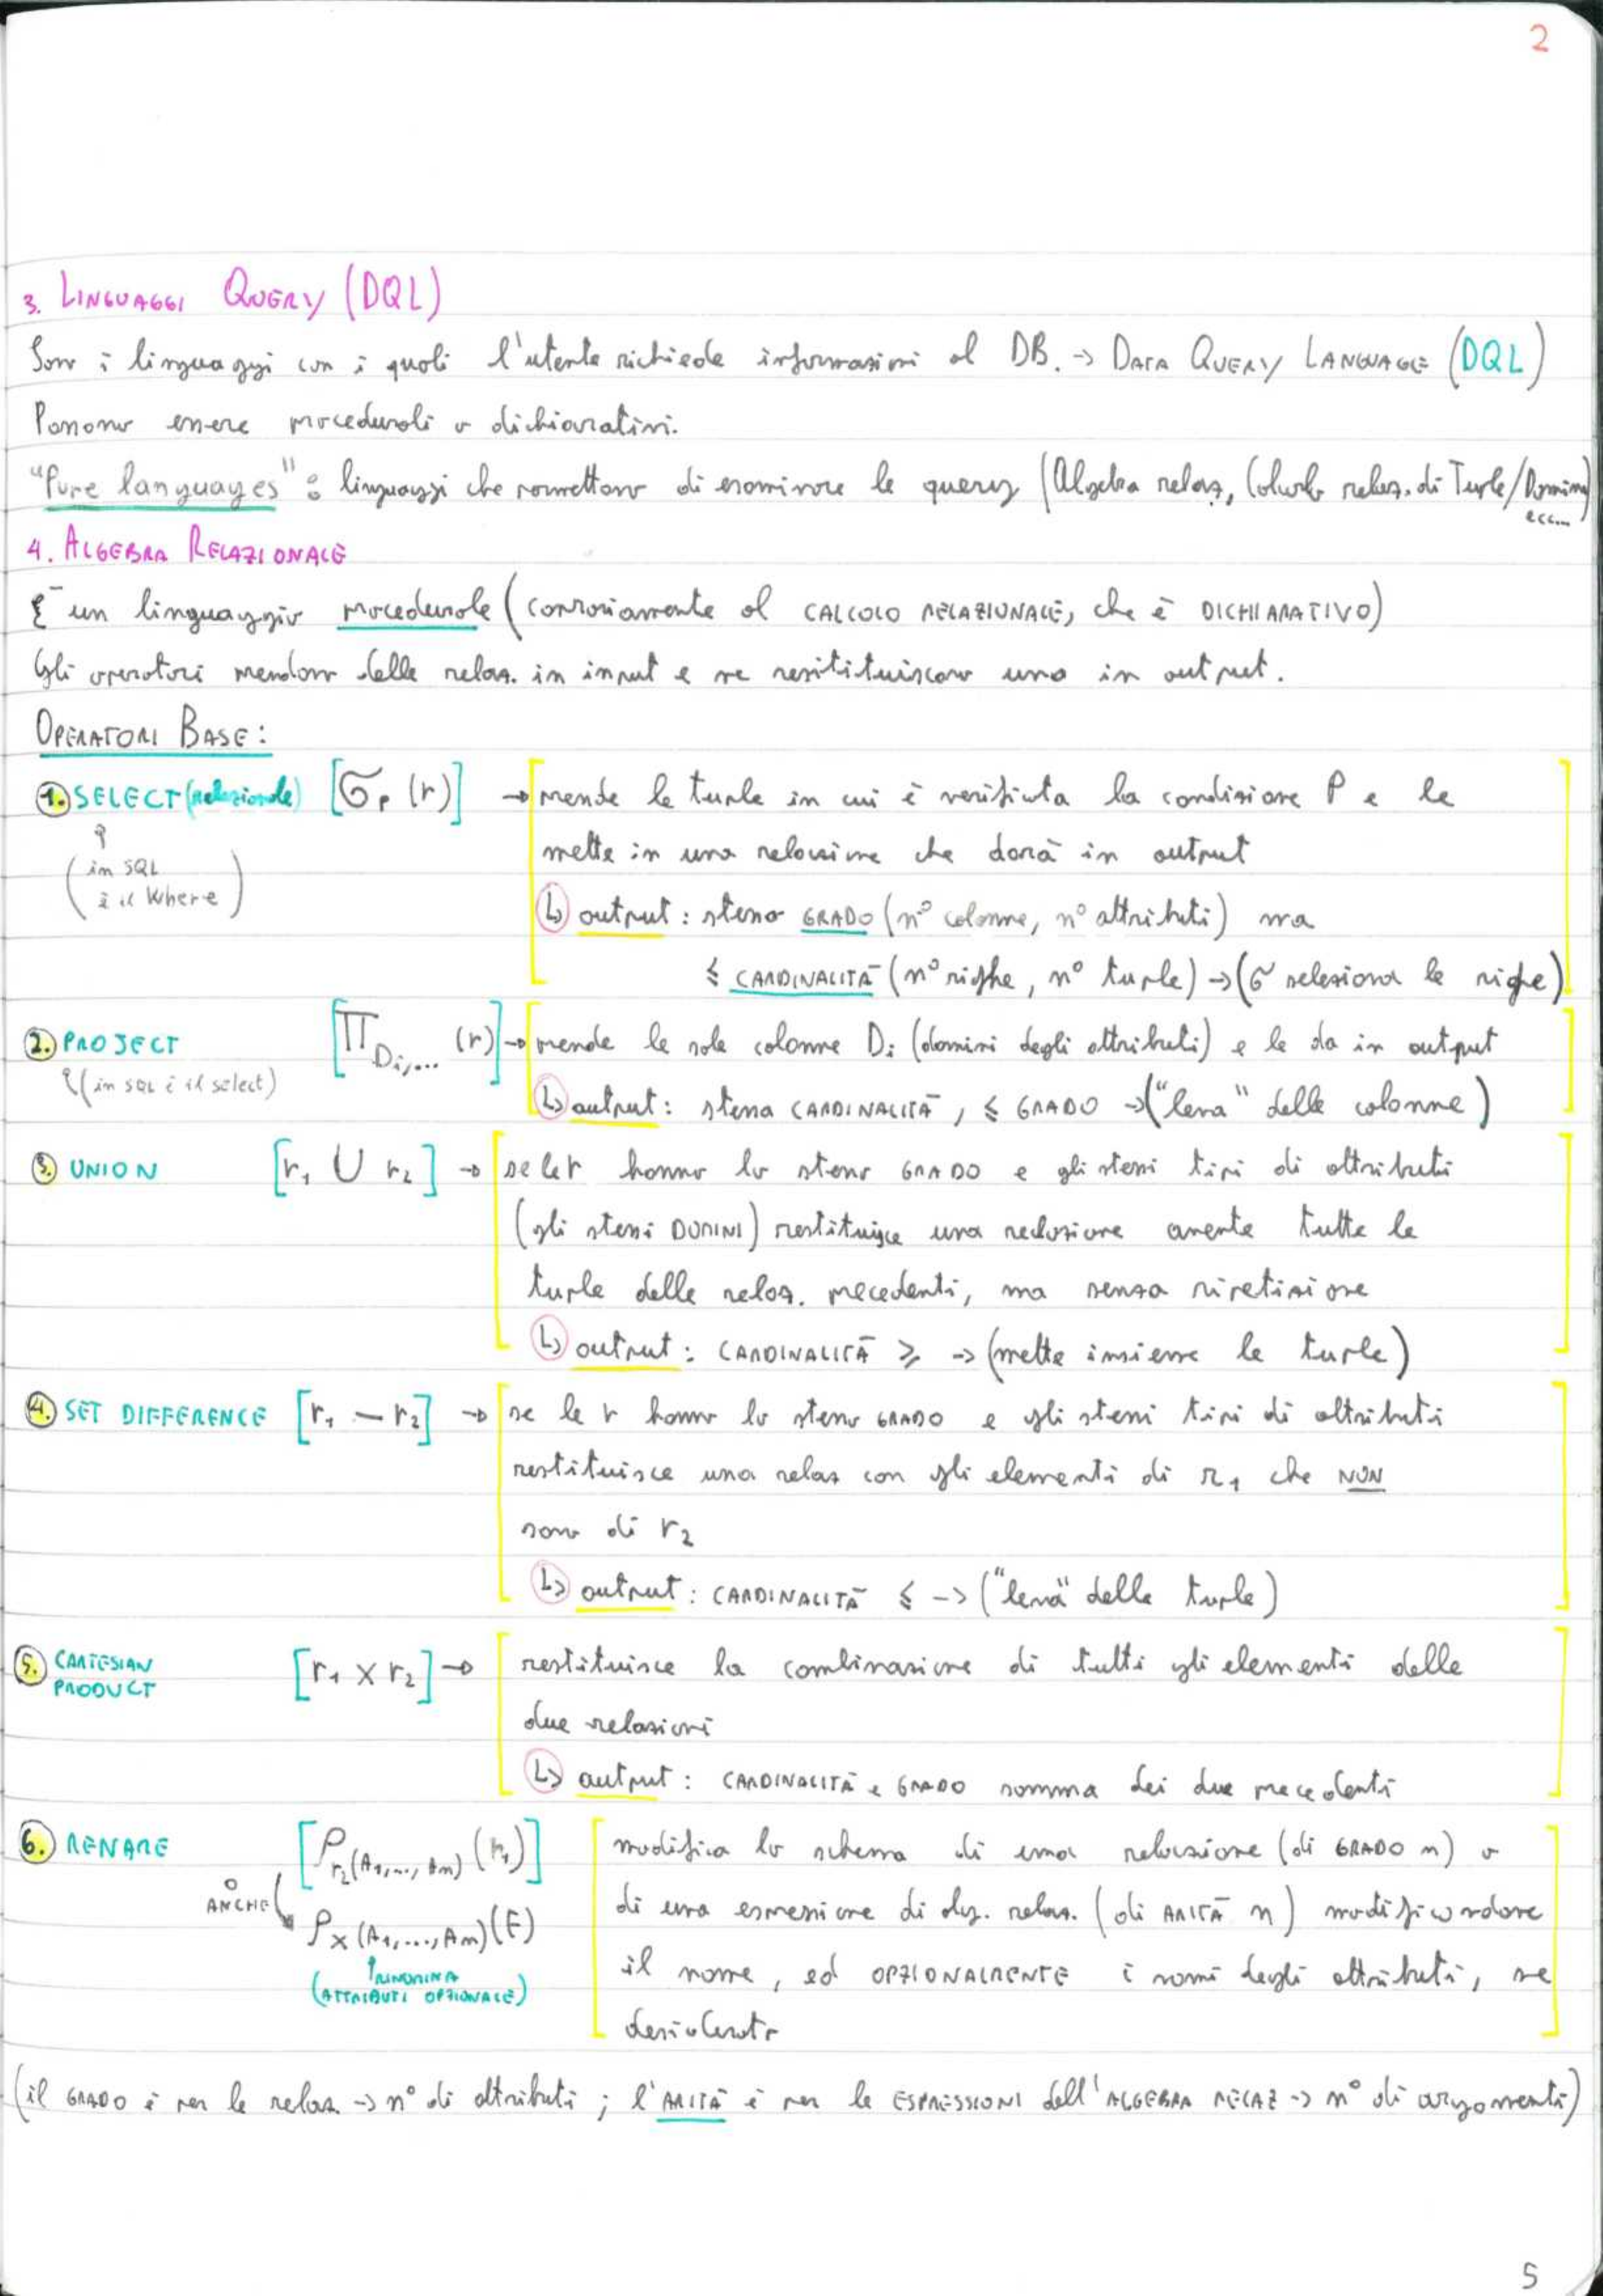 2
3. LINGUAGGI QUERY (DQL)
Sono i linguaggi con i quali l'utente richiede informazioni al DB. → DATA QUERY LANGUAGE (DQL)
Possono essere procedurali o dichiarativi.
"Pure languages": linguaggi che permettono di esaminare le query (Algebra relaz, Calcolo relaz. di Tuple/Dominio
ecc...)
4. ALGEBRA RELAZIONALE
È un linguaggio procedurale (contrariamente al CALCOLO RELAZIONALE, che è DICHIARATIVO)
Gli operatori prendono delle relaz. in input e ne restituiscono una in output.
OPERATORI BASE:
1. SELECT (relazionale) [σP (r)] → prende le tuple in cui è verificata la condizione P e le
(in SQL è il Where) mette in una relazione che darà in output
↳ output: stesso GRADO (n° colonne, n° attributi) ma
≤ CARDINALITÀ (n° righe, n° tuple) → (σ seleziona le righe)
2. PROJECT [ΠDi,... (r)] → prende le sole colonne Di (domini degli attributi) e le da in output
(in SQL è il select) ↳ output: stessa CARDINALITÀ, ≤ GRADO → ("leva" delle colonne)
3. UNION [r1 ∪ r2] → se le r hanno lo stesso GRADO e gli stessi tipi di attributi
(gli stessi DOMINI) restituisce una relazione avente tutte le
tuple delle relaz. precedenti, ma senza ripetizione
↳ output: CARDINALITÀ ≥ → (mette insieme le tuple)
4. SET DIFFERENCE [r1 — r2] → se le r hanno lo stesso GRADO e gli stessi tipi di attributi
restituisce una relaz con gli elementi di r1 che NON
sono di r2
↳ output: CARDINALITÀ ≤ → ("leva" delle tuple)
5. CARTESIAN PRODUCT [r1 × r2] → restituisce la combinazione di tutti gli elementi delle
due relazioni
↳ output: CARDINALITÀ e GRADO somma dei due precedenti
6. RENAME [ρr2(A1,..., Am) (r1)] modifica lo schema di una relazione (di GRADO n) o
O ANCHE ρX(A1,..., Am)(E) di una espressione di alg. relaz. (di ARITÀ n) modificandone
↑RINOMINA (ATTRIBUTI OPZIONALE) il nome, ed OPZIONALMENTE i nomi degli attributi, se
desiderato
(il GRADO è per le relaz → n° di attributi; l'ARITÀ è per le ESPRESSIONI dell'ALGEBRA RELAZ → n° di argomenti)
5